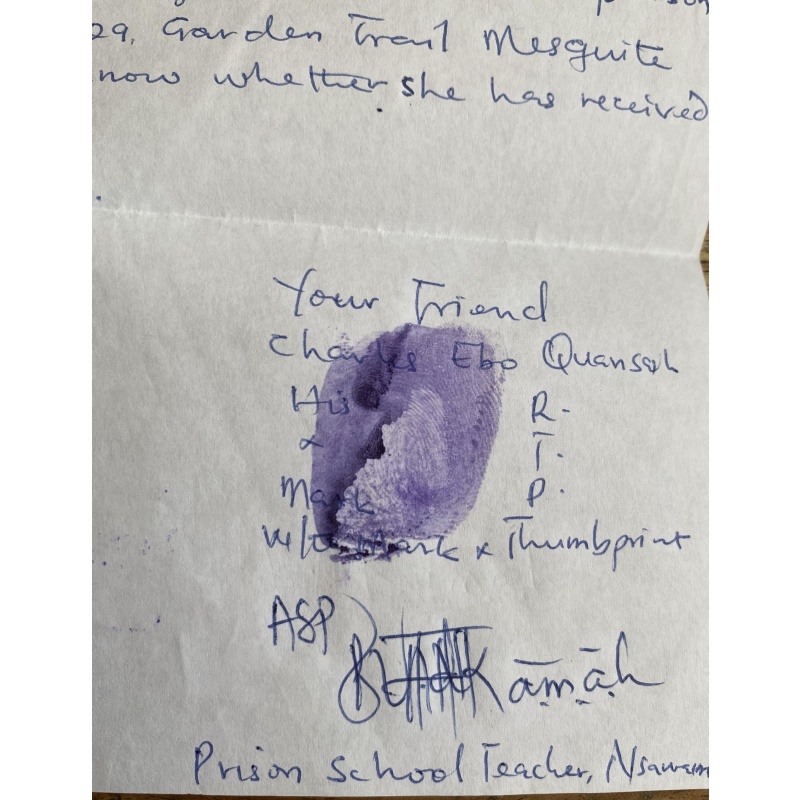 29, Garden Trail Mesquite
now whether she has received
Your Friend
Charles Ebo Quansah
His R.
x T.
Mark P.
W/to Mark x Thumbprint
ASP
Prison School Teacher, Nsawam